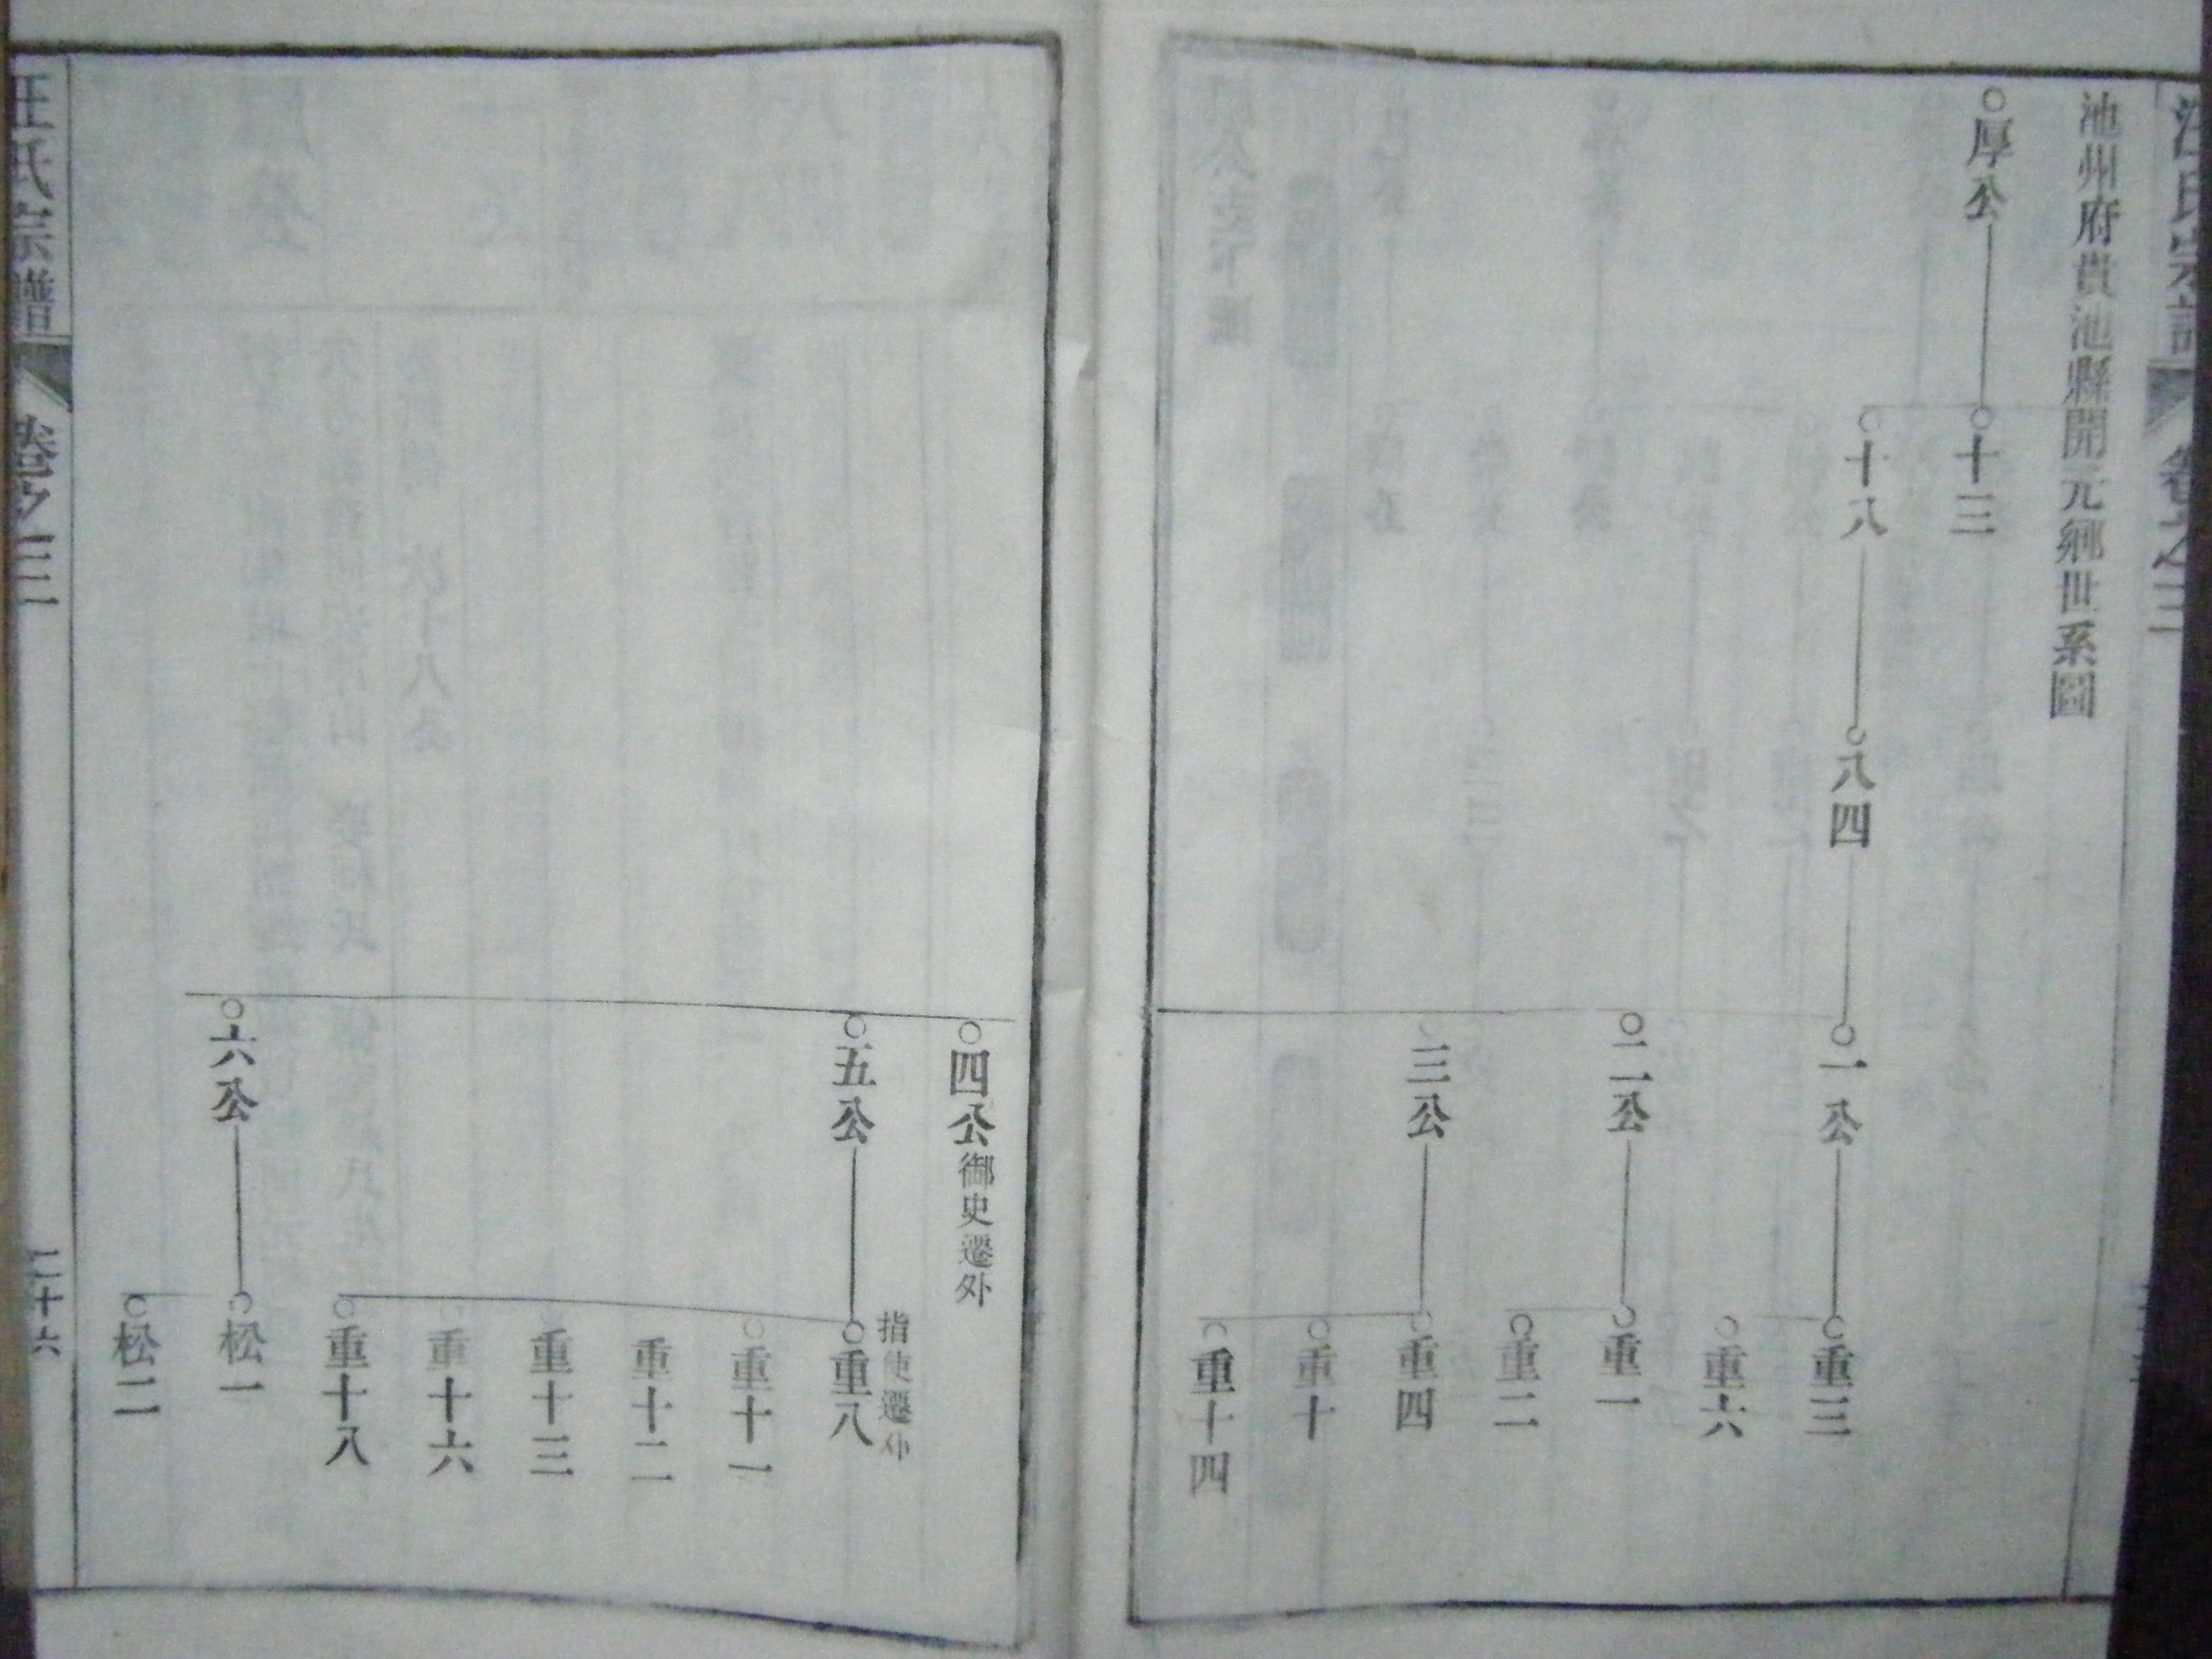 汪氏宗譜
卷之三
池州府貴池縣開元鄉世系圖
厚公
十三
十八
八四
一公
重三
重六
二公
重一
重二
三公
重四
重十
重十四
四公御史遷外
五公
指使遷外
重八
重十一
重十二
重十三
重十六
重十八
六公
松一
松二
汪氏宗譜
卷之三
二十六